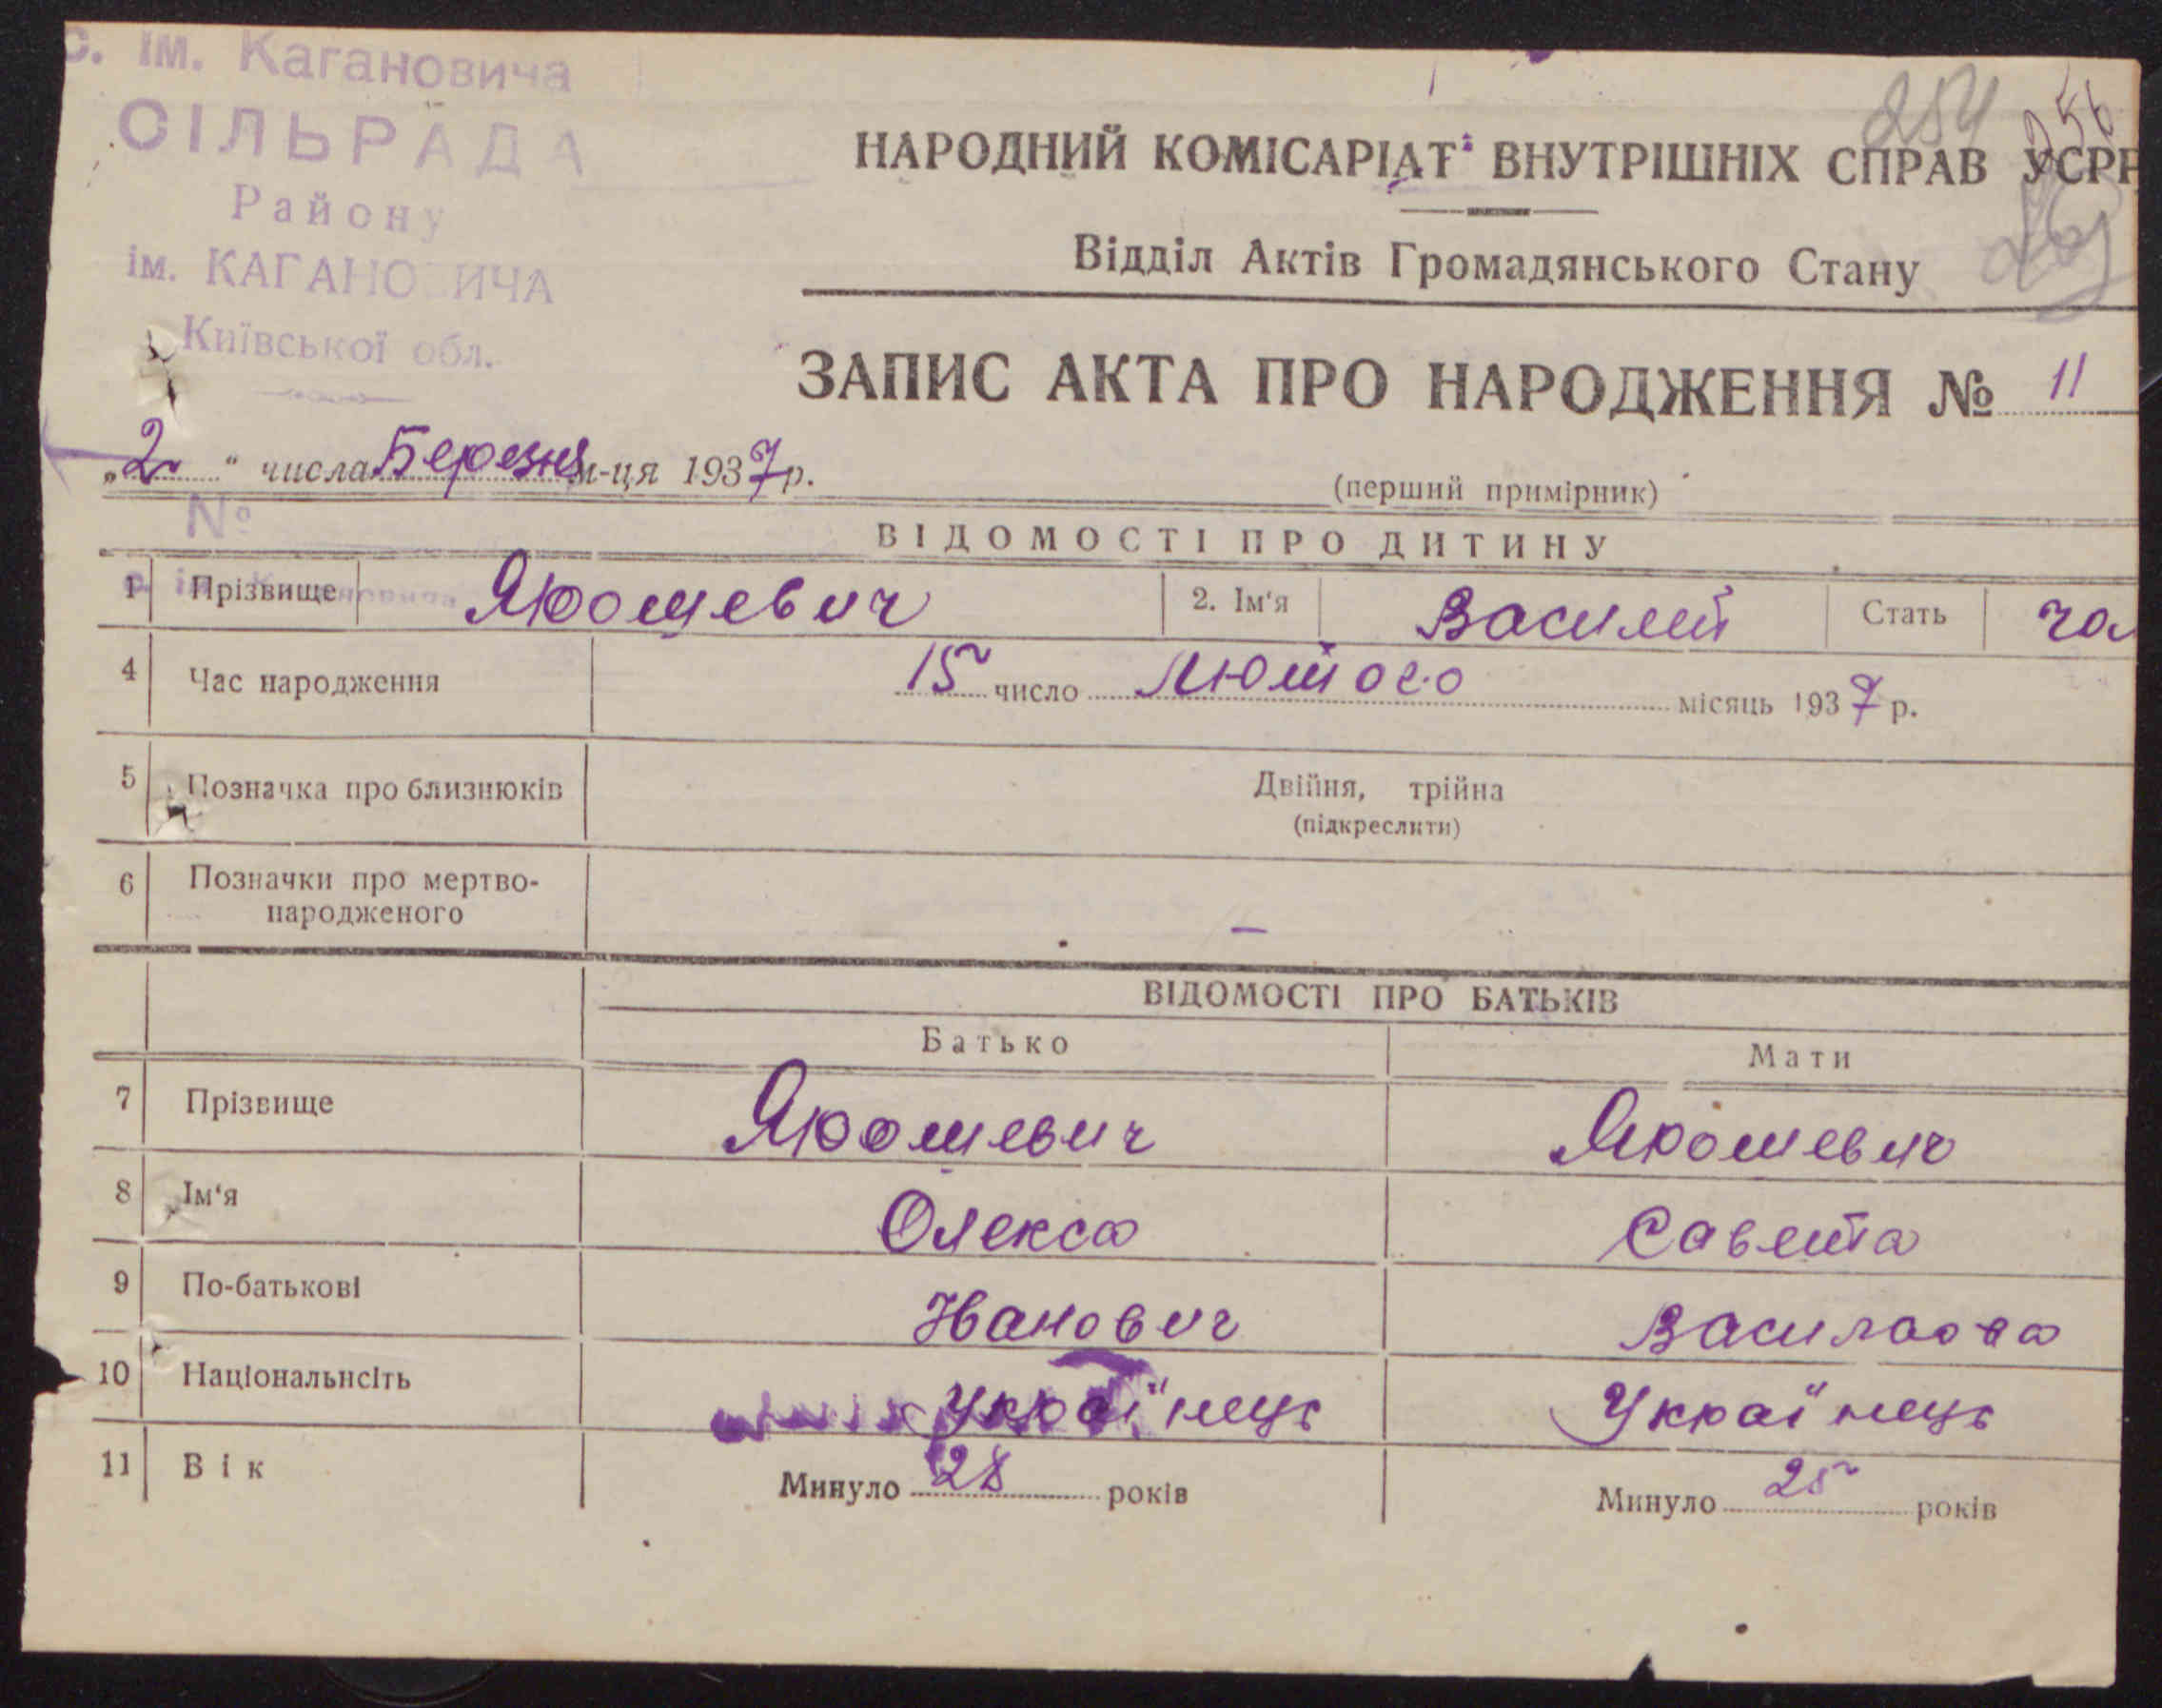 с. ім. Кагановича
СІЛЬРАДА
Району
ім. КАГАНОВИЧА
Київської обл.
254
256
НАРОДНИЙ КОМІСАРІАТ ВНУТРІШНІХ СПРАВ УСРР
Відділ Актів Громадянського Стану
ЗАПИС АКТА ПРО НАРОДЖЕННЯ № 11
„2" числа Березня м-ця 1937 р.
(перший примірник)
№
ВІДОМОСТІ ПРО ДИТИНУ
1 Прізвище Ярошевич 2. Ім'я Василий Стать чол
4 Час народження 15 число Лютого місяць 1937 р.
5 Позначка про близнюків Двійня, трійна
(підкреслити)
6 Позначки про мертво-
народженого —
ВІДОМОСТІ ПРО БАТЬКІВ
Батько Мати
7 Прізвище Ярошевич Ярошевич
8 Ім'я Олекса Савета
9 По-батькові Іванович Василовна
10 Національнсіть Українець Українець
11 Вік Минуло 28 років Минуло 25 років